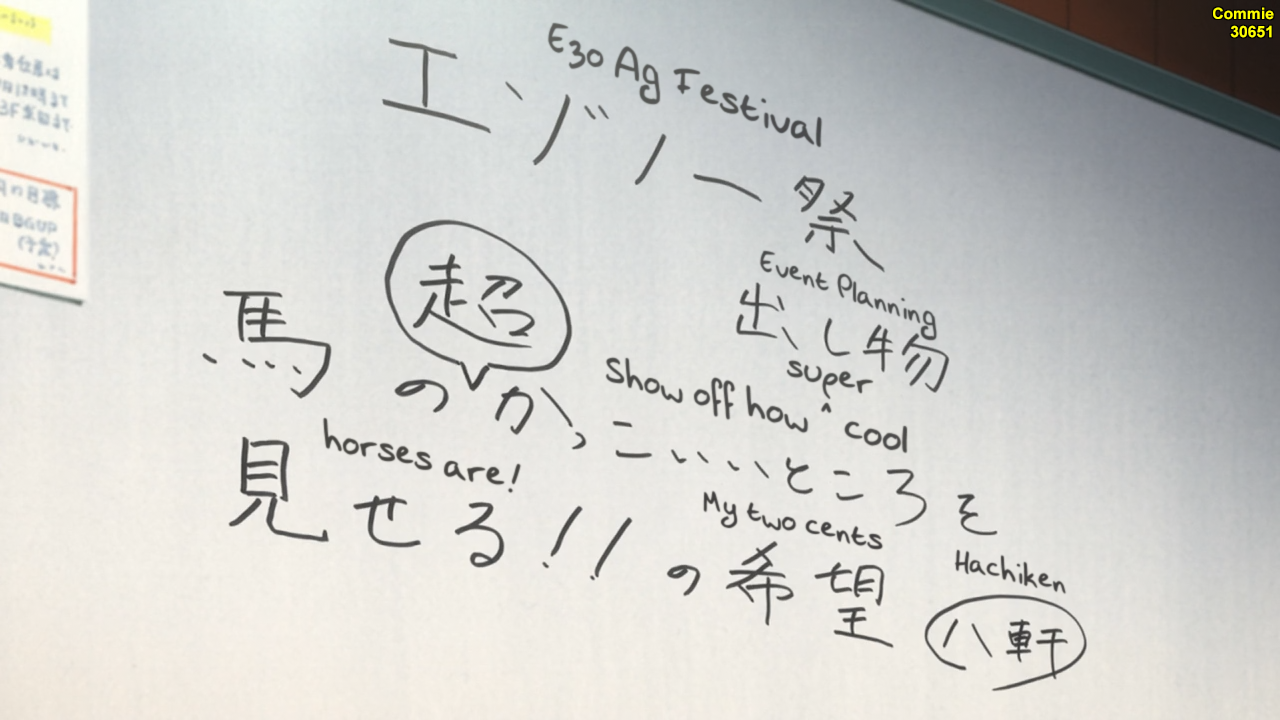 Commie
30651
Ezo Ag Festival
エゾノー祭
Event Planning
出し物
超
super
Show off how ^ cool
馬のかっこいいところを
horses are!
見せる!!
My two cents
の希望
Hachiken
八軒